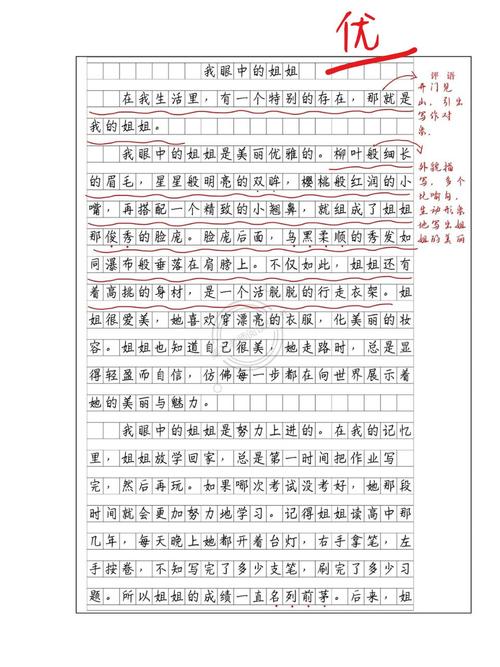 优
我眼中的姐姐
在我生活里，有一个特别的存在，那就是
我的姐姐。
我眼中的姐姐是美丽优雅的。柳叶般细长
的眉毛，星星般明亮的双眸，樱桃般红润的小
嘴，再搭配一个精致的小翘鼻，就组成了姐姐
那俊秀的脸庞。脸庞后面，乌黑柔顺的秀发如
同瀑布般垂落在肩膀上。不仅如此，姐姐还有
着高挑的身材，是一个活脱脱的行走衣架。姐
姐很爱美，她喜欢穿漂亮的衣服，化美丽的妆
容。姐姐也知道自己很美，她走路时，总是显
得轻盈而自信，仿佛每一步都在向世界展示着
她的美丽与魅力。
我眼中的姐姐是努力上进的。在我的记忆
里，姐姐放学回家，总是第一时间把作业写
完，然后再玩。如果哪次考试没考好，她那段
时间就会更加努力地学习。记得姐姐读高中那
几年，每天晚上她都开着台灯，右手拿笔，左
手按卷，不知写完了多少支笔，刷完了多少习
题。所以姐姐的成绩一直名列前茅。后来，姐
评语
开门见
山，引出
写作对
象。
外貌描
写，多个
比喻句，
生动形象
地写出姐
姐的美丽